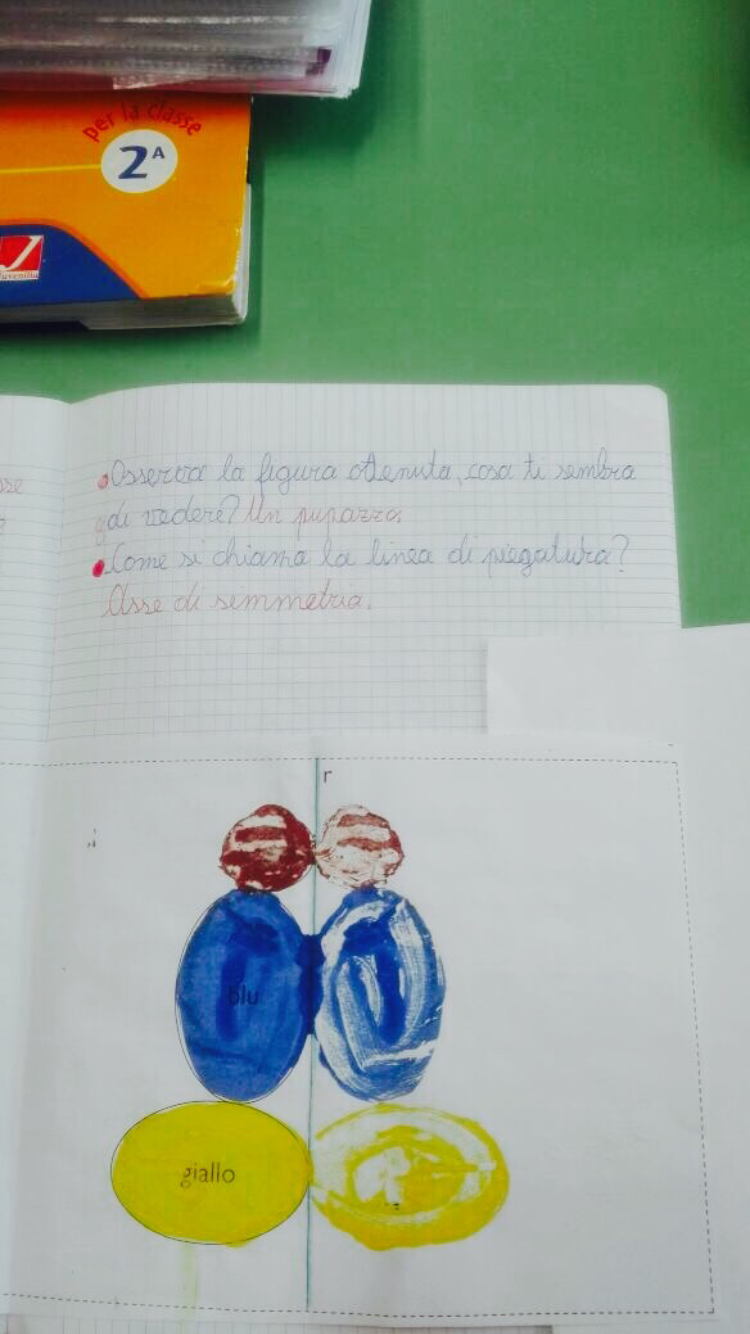 per la classe
2A
Juvenilia
Osserva la figura ottenuta, cosa ti sembra
di vedere? Un pupazzo.
Come si chiama la linea di piegatura?
Asse di semmetria.
r
blu
giallo